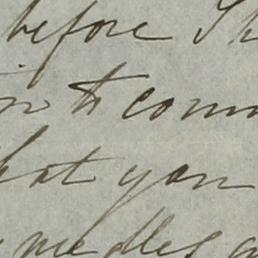 before I h
in to comm
hat you
needles a